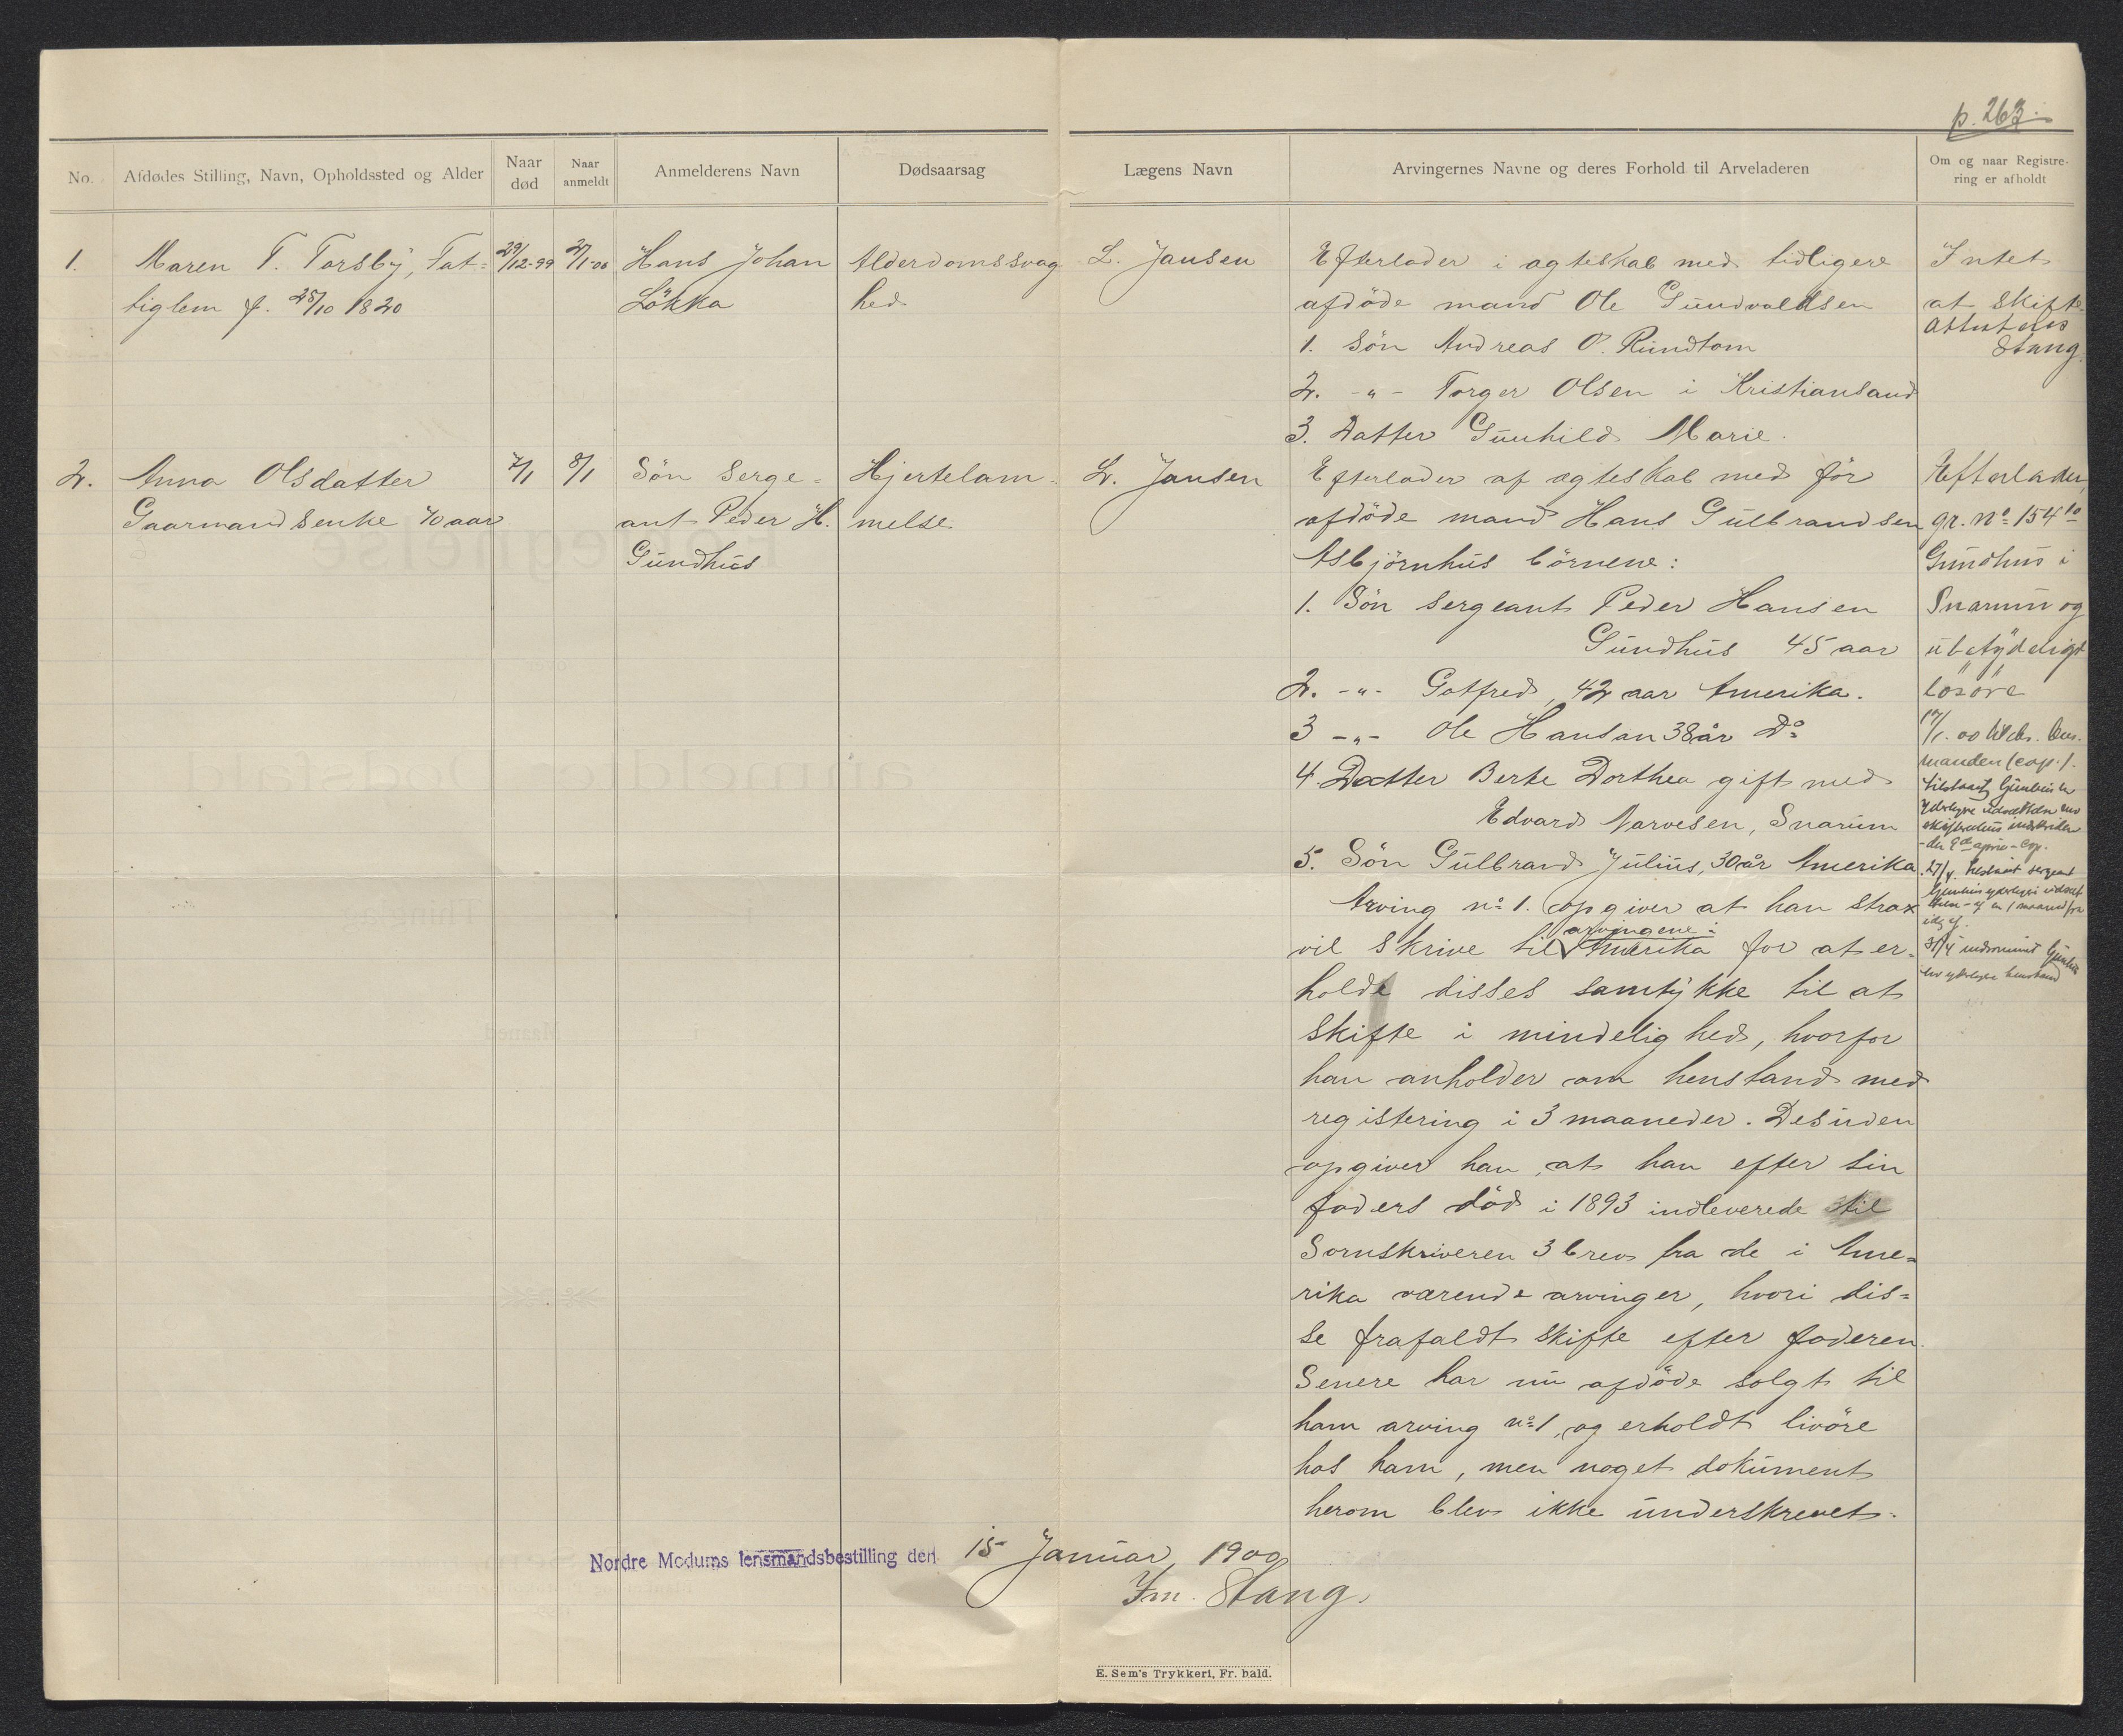 p. 263.
No.
Afdødes Stilling, Navn, Opholdssted og Alder
Naar død
Naar anmeldt
Anmelderens Navn
Dødsaarsag
Lægens Navn
Arvingernes Navne og deres Forhold til Arveladeren
Om og naar Registre-
ring er afholdt
1.
Maren T. Torsby, Fat=
tiglem f. 25/10 1820
29/12-99
2/1-00
Hans Johan
Løkka
Alderdomssvag
hed
L. Jansen
Efterlader i ægteskab med tidligere
afdøde mand Ole Gundvaldsen
1. Søn Andreas O. Rundtom
2. -"- Torger Olsen i Kristiansand
3. Datter Gunhild Marie.
Intet
at skifte
Attesteres
Stang
2.
Anna Olsdatter
Gaarmandsenke 70 aar
7/1
8/1
Søn Serge=
ant Peder H.
Gundhus
Hjertelam-
melse
L. Jansen
Efterlader af ægteskab med før
afdøde mand Hans Gulbrandsen
Asbjørnhus børnene:
1. Søn sergeant Peder Hansen
Gundhus 45 aar
2. -"- Gotfred, 42 aar Amerika.
3 -"- Ole Hansen 38 år Do
4. Datter Berte Dorthea gift med
Edvard Narvesen, Snarum
5. Søn Gulbrand Julius, 30 år Amerika
Arving no 1. opgiver at han strax
vil skrive til arvingene i Amerika for at er-
holde disses samtykke til at
skifte i mindelighed, hvorfor
han anholder om henstand med
registering i 3 maaneder. Desuden
opgiver han, at han efter sin
faders død i 1893 indleverede til
Sornskriveren 3 brev fra de i Ame=
rika værende arvinger, hvori dis=
se frafaldt skifte efter faderen.
Senere har nu afdøde solgt til
ham arving no 1, og erholdt livøre
hos ham, men noget dokument
herom blev ikke underskrevet.
Efterlader
gr. No 154 10
Gundhus i
Snarum og
ubetydeligt
løsøre
17/1. 00 tilskr. lens-
manden (cop.).
27/4. tilstaaet sergeant
Nordre Modums lensmandsbestilling den 15 Januar 1900
Im. Stang.
E. Sem's Trykkeri, Fr. hald.